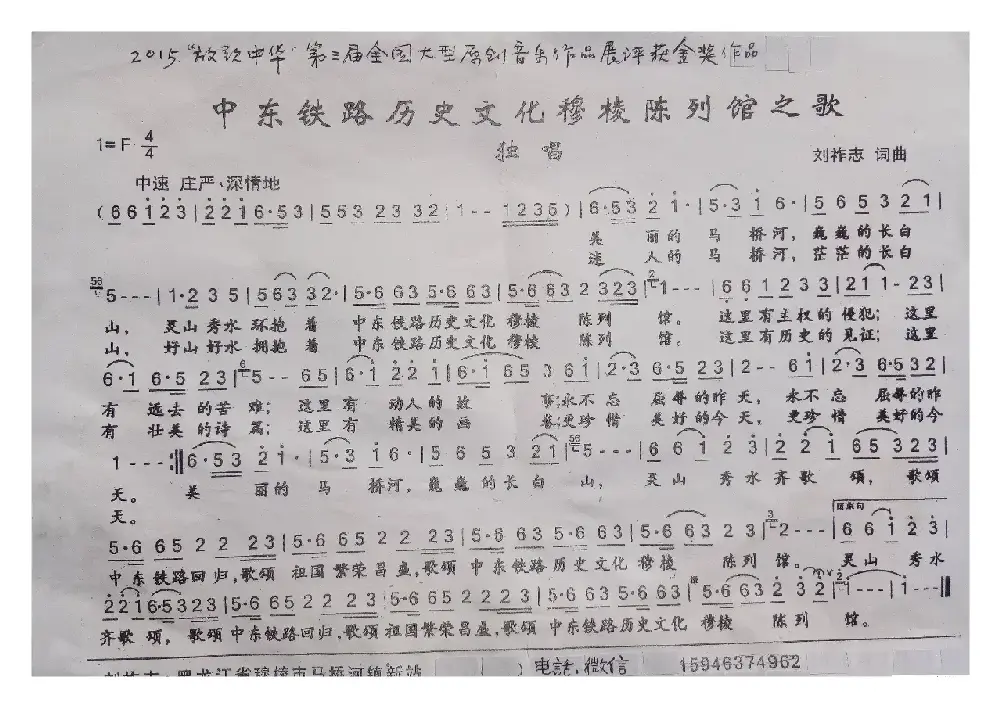 2015.“放歌中华”第三届全国大型原创音乐作品展评获金奖作品
中东铁路历史文化穆棱陈列馆之歌
1=F 4/4
独唱
刘柞志 词曲
中速 庄严、深情地
(6 6 1 2 3 | 2 2 1 6·5 3 | 5 5 3 2 3 3 2 | 1 - - 1 2 3 5) | 6·5 3 2 1· | 5·3 1 6· | 5 6 5 3 2 1 |
美 丽的 马 桥河，巍巍的长白
迷 人的 马 桥河，茫茫的长白
5 - - - | 1·2 3 5 | 5 6 3 3 2· | 5·6 6 3 5·6 6 3 | 5·6 6 3 2 3 2 3 | 1 - - - | 6 6 1 2 3 3 | 2 1 1 - 2 3 |
山，灵山秀水环抱着 中东铁路历史文化 穆棱 陈列 馆。 这里有主权的侵犯；这里
山，好山好水拥抱着 中东铁路历史文化 穆棱 陈列 馆。 这里有历史的见证；这里
6·1 6·5 2 3 | 5 - - 6 5 | 6·1 2 2 1 | 6·1 6 5 3 6 1 | 2·3 6·5 2 3 | 2 - - 6 1 | 2·3 6·5 3 2 |
有 远去的苦难；这里有 动人的故 事；永不忘 屈辱的昨天，永不忘 屈辱的昨
有 壮美的诗篇；这里有 精美的画 卷；更珍惜 美好的今天，更珍惜 美好的今
1 - - - :‖ 6·5 3 2 1· | 5·3 1 6· | 5 6 5 3 2 1 | 5 - - - | 6 6 1 2 3 | 2 2 1 6 5 3 2 3 |
天。 美 丽的 马 桥河，巍巍的长白 山，灵山 秀水齐歌 颂，歌颂
天。
5·6 6 5 2 2 2 3 | 5·6 6 5 2 2 2 3 | 5·6 6 3 5·6 6 3 | 5·6 6 3 2 3 | 2 - - - | 6 6 1 2 3 |
结束句
中东铁路回归，歌颂 祖国繁荣昌盛，歌颂 中东铁路历史文化 穆棱 陈列 馆。灵山 秀水
2 2 1 6·5 3 2 3 | 5·6 6 5 2 2 2 3 | 5·6 6 5 2 2 2 3 | 5·6 6 3 5·6 6 3 | 5·6 6 3 2 3 2 | 1 - - - | 1 - - - ‖
齐歌 颂，歌颂中东铁路回归，歌颂祖国繁荣昌盛，歌颂 中东铁路历史文化 穆棱 陈列 馆。
刘柞志：黑龙江省穆棱市马桥河镇新站 电话，微信 15946374962